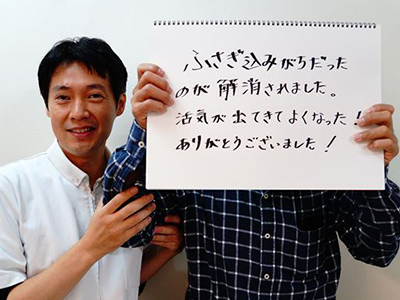 ふさぎ込みがちだった
のが解消されました。
活気が出てきてよくなった！
ありがとうございました！